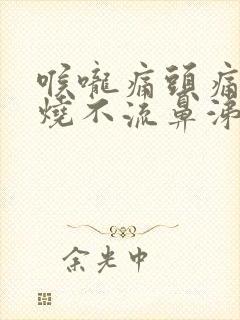 喉嚨痛頭痛
燒不流鼻涕
余光中